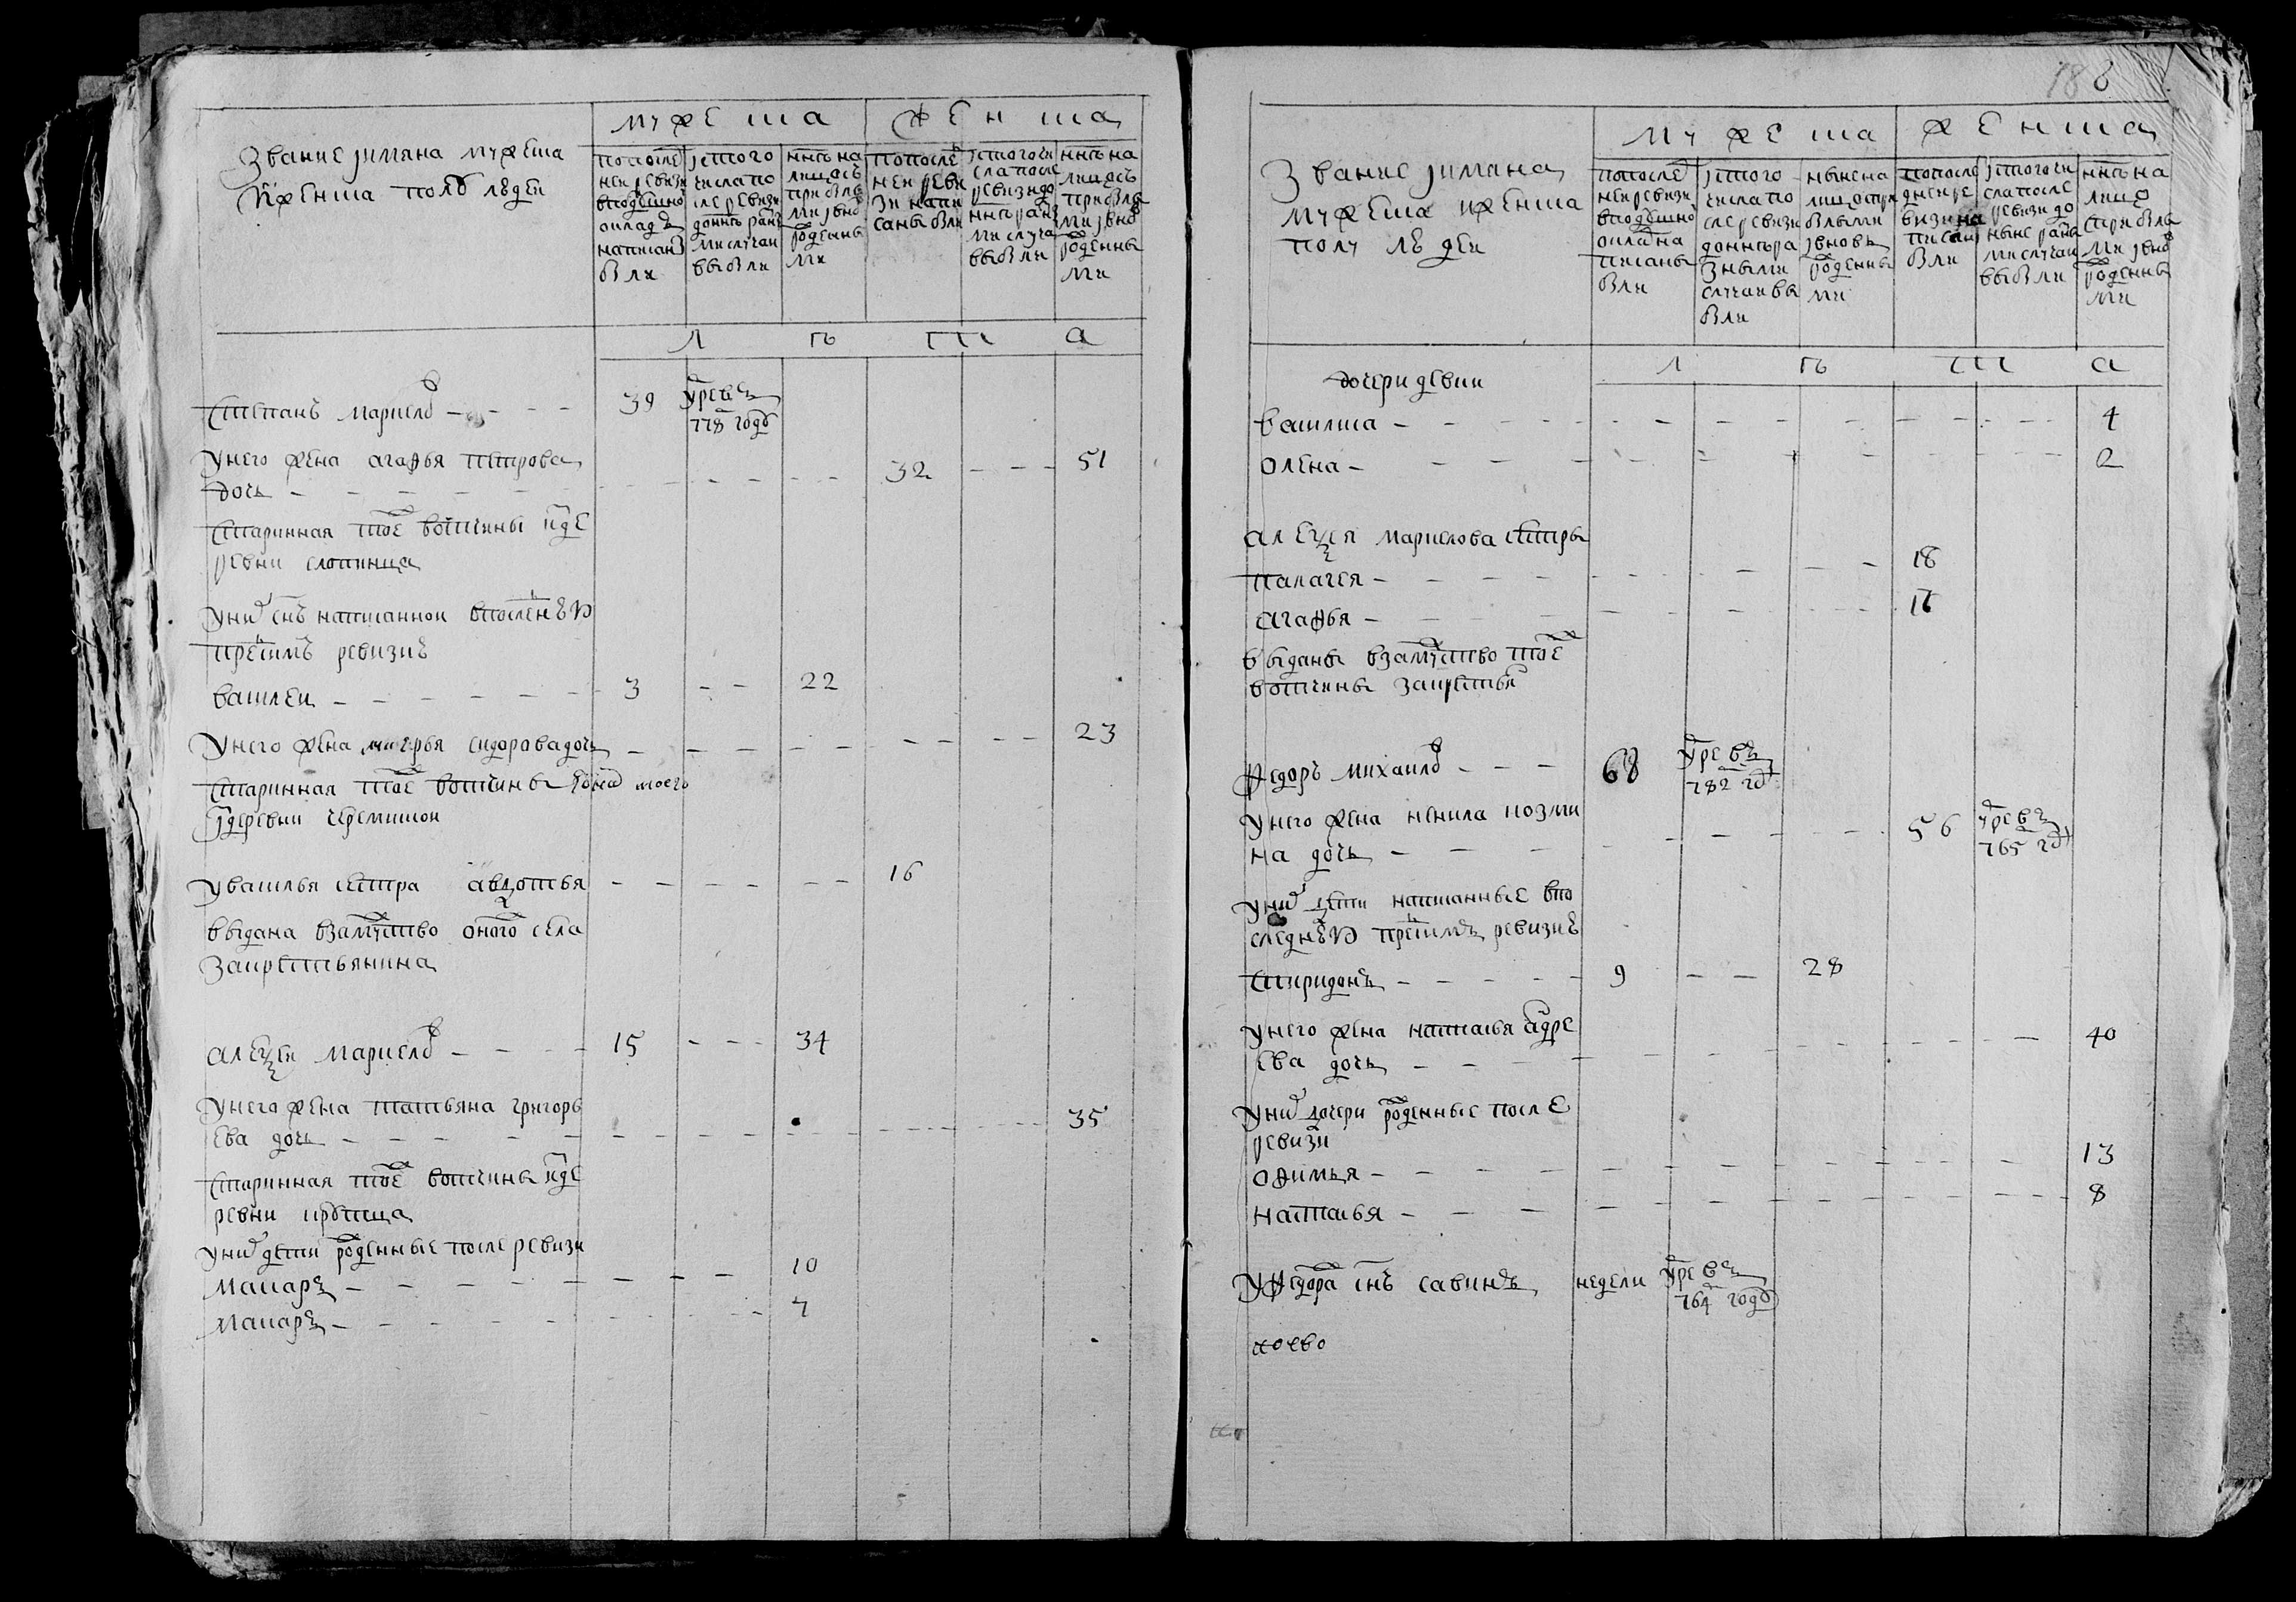 Звание и имяна мужеска
и женска полу людей
мужеска
женска
по после
ней ревизи
в подушно
оклад
написан
были
ис того
числа по
сле ревизи
до ннѣ раз
ми случаи
выбыли
ннѣ на
лицось
прибылы
ми и внов
рожденны
ми
по после
ней реви
зи напи
саны были
ис того чи
сла после
ревизи до
ннѣ раз
ми случа
выбыли
ннѣ на
лицось
прибылы
ми и внов
рожденны
ми
л ѣ т а
Степанъ маркелов 39 умре в
778 году
у него жена агафья петрова
дочь 32 51
старинная тое вотчины и де
ревни
у них снъ написанной в послѣднѣй
прежнѣ ревизиѣ
василеи 3 22
у него жена сидорава дочь 23
старинная тое вотчины моего
деревни
у василья сестра авдотья 16
выдана в замужство оного села
за крестьянина
алексеи маркелов 15 34
у него жена татьяна григорь
ева дочь 35
старинная тое вотчины и де
ревни
у них дети рожденные после ревизи
макаръ 10
макаръ 7
188
Звание и имяна
мужеска и женска
полу людей
мужеска
женска
по послед
ней ревизи
в подушно
окла на
писаны
были
ис того
числа по
сле ревизи
до ннѣ ра
зными
случаи вы
были
ныне на
лицо при
былыми
и вновь
рожденны
ми
по после
дне ре
визи на
писан
были
ис того чи
сла после
ревизи до
ныне разны
ми случаи
выбыли
ннѣ на
лицо
с прибылы
ми и внов
рожденны
ми
л ѣ т а
дочери девки
василиса 4
олена 2
алексея маркелова сестры
палагея 18
агафья 16
выданы в замужство тое
вотчины за крестьян
федоръ михаилов 68 умре в
782 год
у него жена ненила козми
на дочь 56 умре в
765 год
у них дети написанные в по
следнѣй прежнѣ ревизиѣ
спиридонъ 9 28
у него жена наталья андре
ева дочь 40
у них дочери рожденные после
ревизи
офимья 13
наталья 8
у федора снъ савинъ недели умре в
764 году